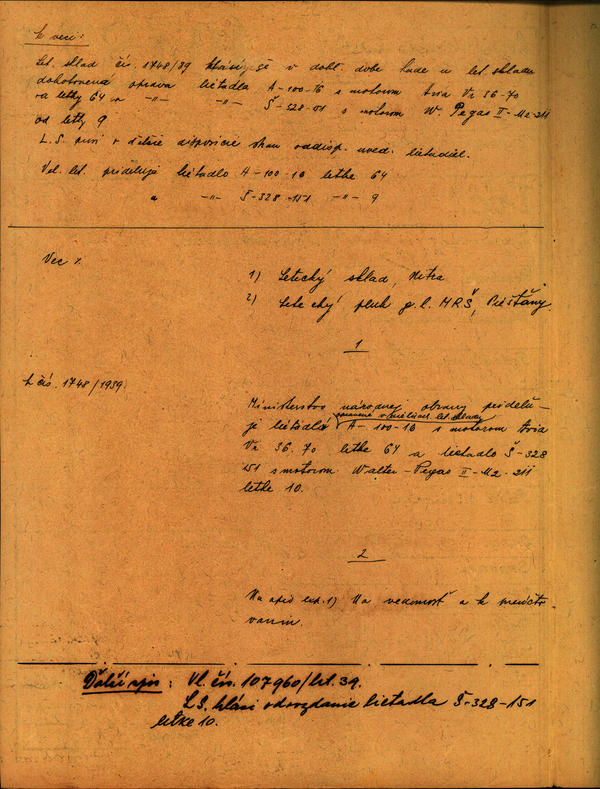 K veci:
Let. sklad čís. 1748/39 hlási, že v dobl. dobe bude u let. skladu
dohotovená oprava lietadla A-100-16 s motorom Avia Vr 36-70
od letky 64 a -"- -"- Š-328-151 s motorom W. Pegas II-M2-211
od letky 9.
L.S. prosí o ďalšie dispozície ohľadom uved. lietadiel.
Vel. let. prideľuje lietadlo A-100-16 letke 64
a -"- Š-328-151 -"- 9
Vec:
1) Letecký sklad, Nitra
2) Letecký pluk g.l. MRŠ, Piešťany.
1
K čís. 1748/1939.
Ministerstvo národnej obrany prideľu-
je lietadlo A-100-16 s motorom Avia
Vr 36.70 letke 64 a lietadlo Š-328
151 s motorom Walter-Pegas II-M2-211
letke 10.
2
Na opis exp. 1) Na vedomosť a k
Ďalší spis: Vl. čís. 107960/let.39.
L.S. hlási odovzdanie lietadla Š-328-151
letke 10.